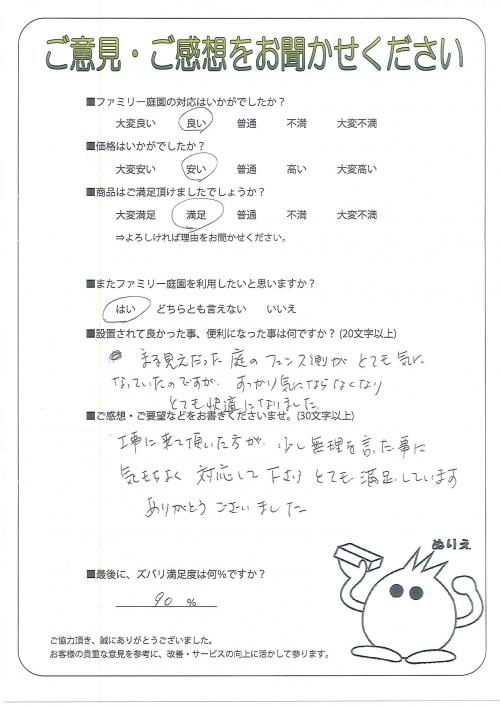 ご意見・ご感想をお聞かせください
■ファミリー庭園の対応はいかがでしたか？
大変良い 良い 普通 不満 大変不満
■価格はいかがでしたか？
大変安い 安い 普通 高い 大変高い
■商品はご満足頂けましたでしょうか？
大変満足 満足 普通 不満 大変不満
⇒よろしければ理由をお聞かせください。
■またファミリー庭園を利用したいと思いますか？
はい どちらとも言えない いいえ
■設置されて良かった事、便利になった事は何ですか？(20文字以上)
まる見えだった庭のフェンス側がとても気に
なっていたのですが、すっかり気にならなくなり
とても快適になりました。
■ご感想・ご要望などをお書きくださいませ。(30文字以上)
工事に来て頂いた方が、少し無理を言った事に
気もちよく対応して下さりとても満足しています
ありがとうございました
ぬりえ
■最後に、ズバリ満足度は何％ですか？
90 %
ご協力頂き、誠にありがとうございました。
お客様の貴重な意見を参考に、改善・サービスの向上に活かして参ります。